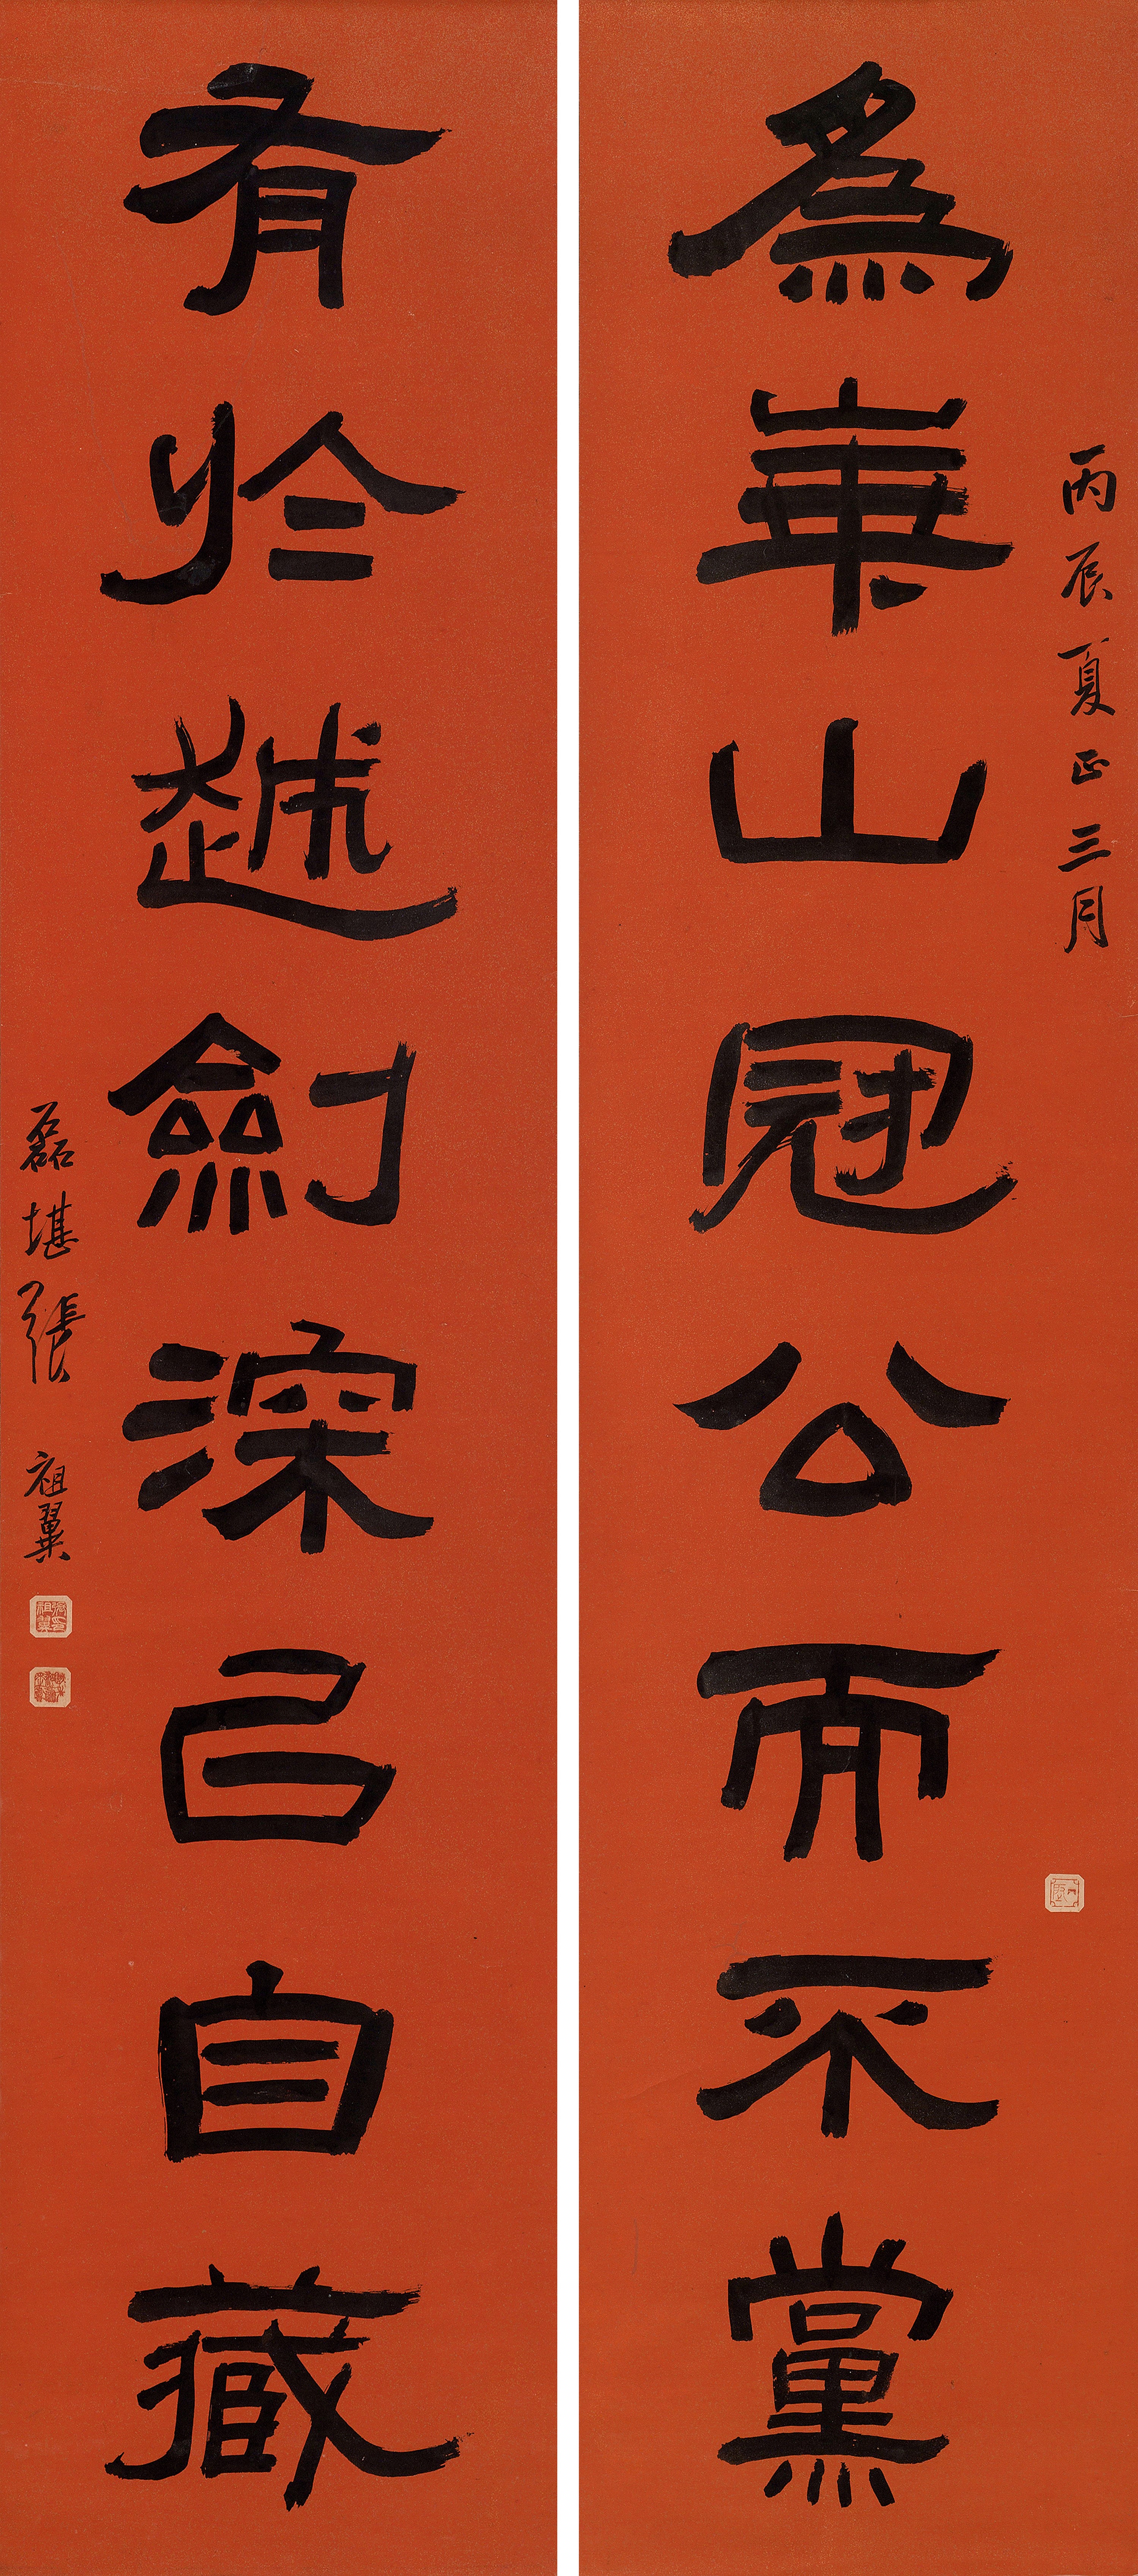 丙辰夏正三月
為華山冠公而不黨
有於越劍深己自藏
磊堪張祖翼
張祖翼